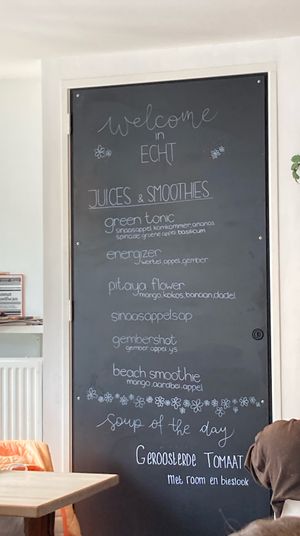 welcome
in
ECHT
JUICES & SMOOTHIES
green tonic
sinaasappel, komkommer, ananas
spinazie, groene appel, basilicum
energizer
wortel, appel, gember
pitaya flower
mango, kokos, banaan, dadel
sinaasappelsap
gembershot
gember, appel, ijs
beach smoothie
mango, aardbei, appel
soup of the day
GEROOSTERDE TOMAAT
met room en bieslook